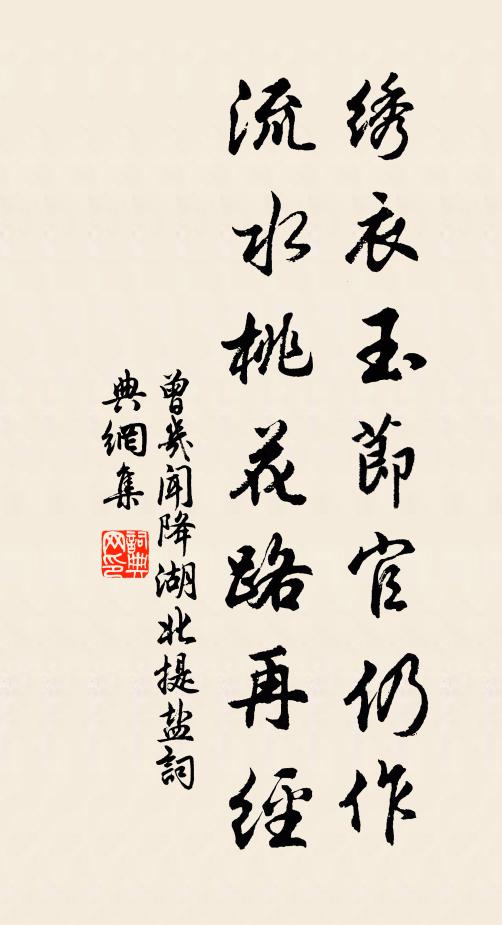 绣衣玉節官仍作
流水桃花路再經
曾幾闻降湖北提盐詞
典網集
詞典网印